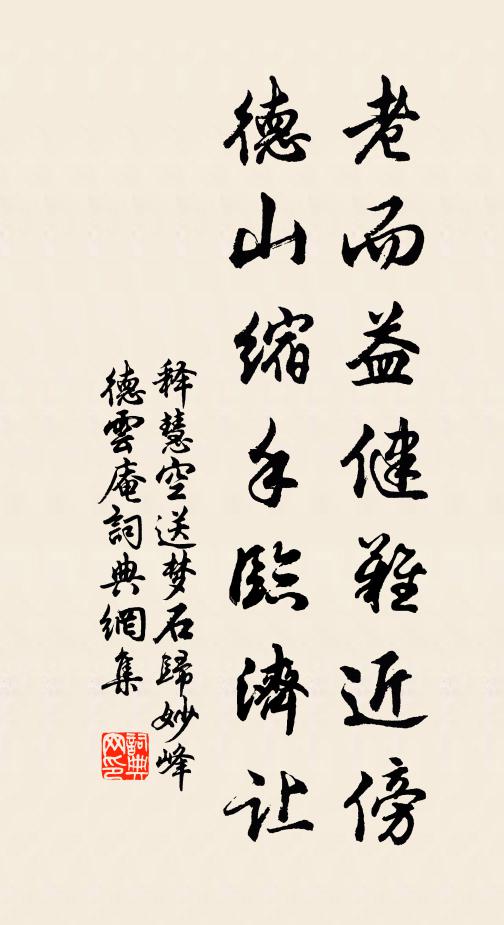 老而益健难近傍
德山缩手临濟让
释慧空送梦石歸妙峰
德雲庵詞典網集
詞典网印